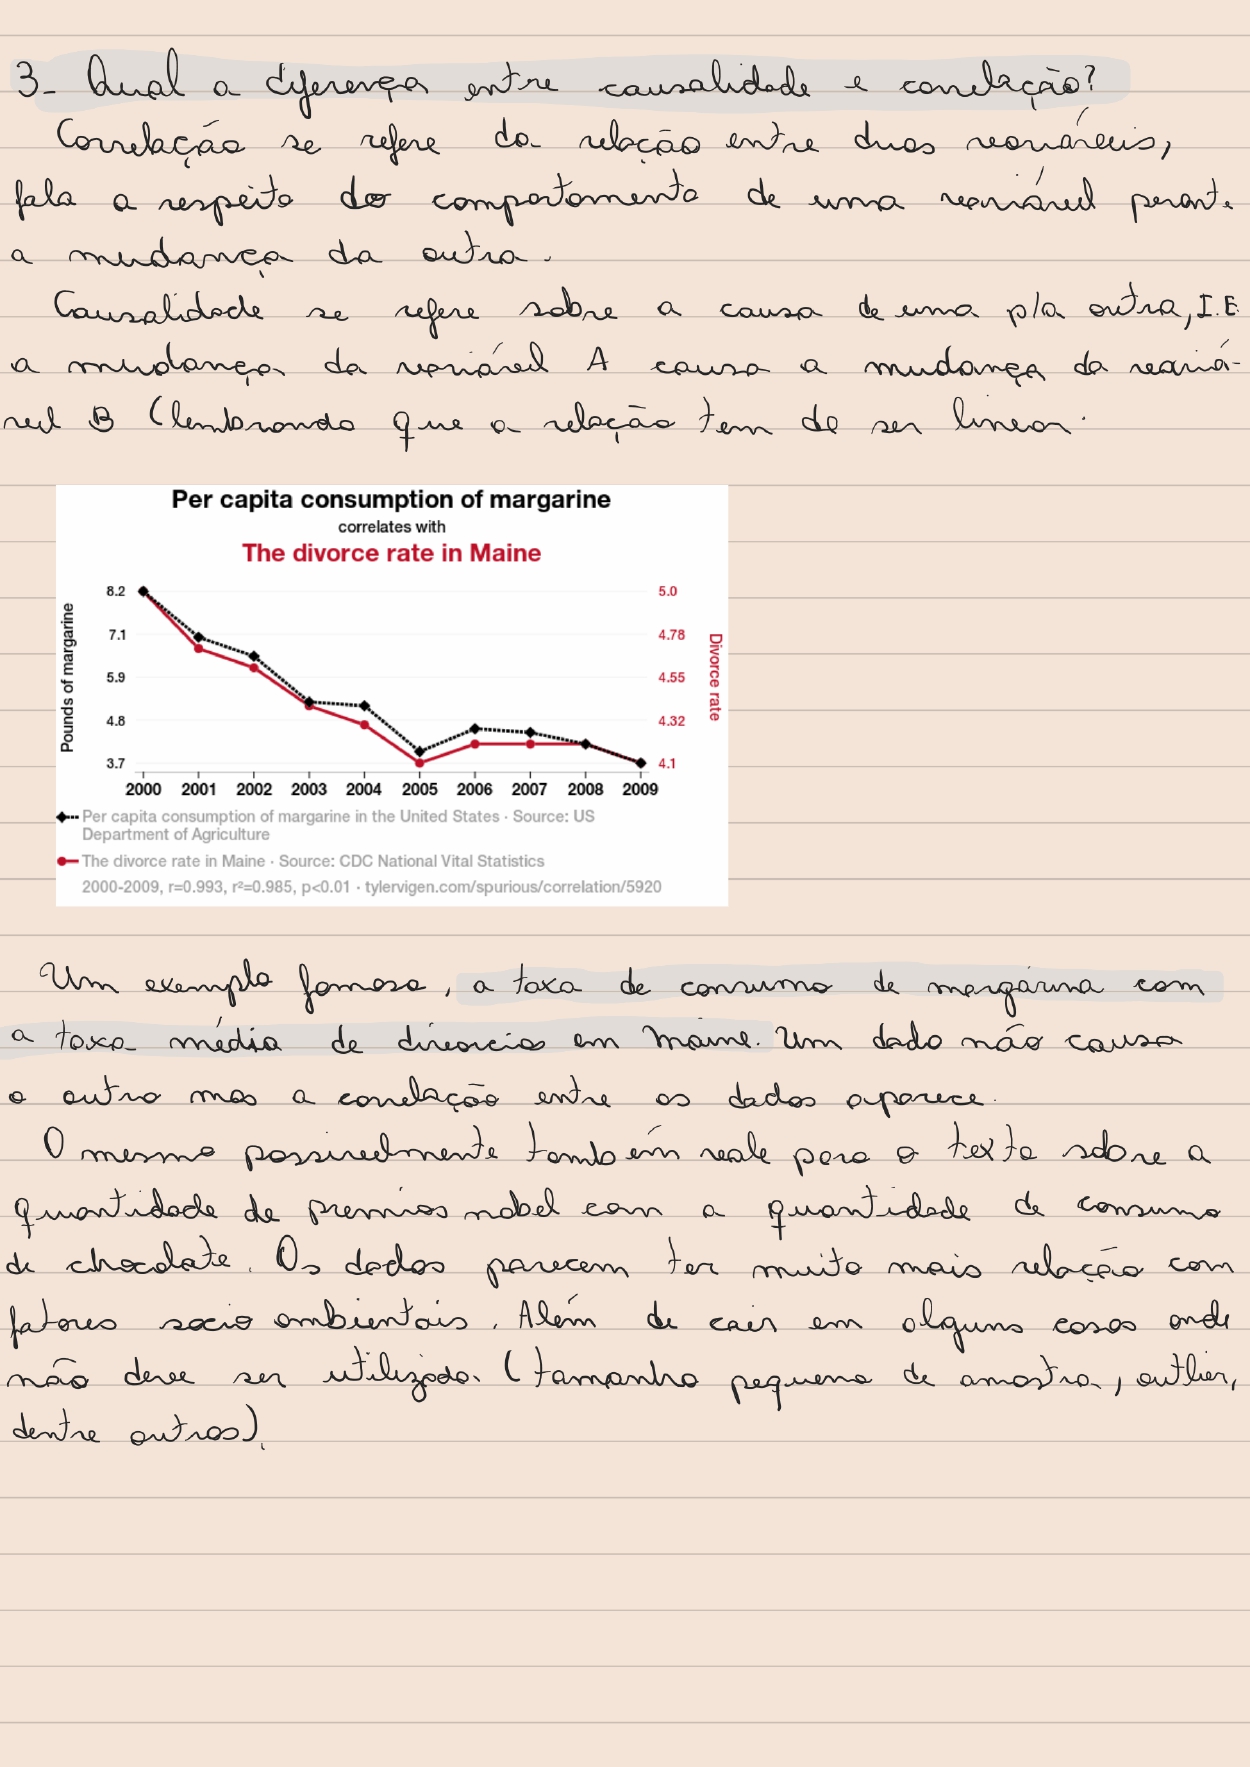 3- Qual a diferença entre causalidade e correlação?
Correlação se refere da relação entre duas variáveis,
fala a respeito do comportamento de uma variável perante
a mudança da outra.
Causalidade se refere sobre a causa de uma p/a outra, I.E.
a mudança da variável A causa a mudança da variá-
vel B (lembrando que a relação tem de ser linear.
Per capita consumption of margarine
correlates with
The divorce rate in Maine
Pounds of margarine
8.2
7.1
5.9
4.8
3.7
5.0
4.78
4.55
4.32
4.1
Divorce rate
2000 2001 2002 2003 2004 2005 2006 2007 2008 2009
Per capita consumption of margarine in the United States · Source: US
Department of Agriculture
The divorce rate in Maine · Source: CDC National Vital Statistics
2000-2009, r=0.993, r²=0.985, p<0.01 · tylervigen.com/spurious/correlation/5920
Um exemplo famoso, a taxa de consumo de margarina com
a taxa média de divorcio em Maine. Um dado não causa
o outro mas a correlação entre os dados aparece.
O mesmo possivelmente também vale para o texto sobre a
quantidade de premios nobel com a quantidade de consumo
de chocolate. Os dados parecem ter muito mais relação com
fatores socio ambientais. Além de cair em alguns casos onde
não deve ser utilizado. (tamanho pequeno de amostra, outlier,
dentre outros).